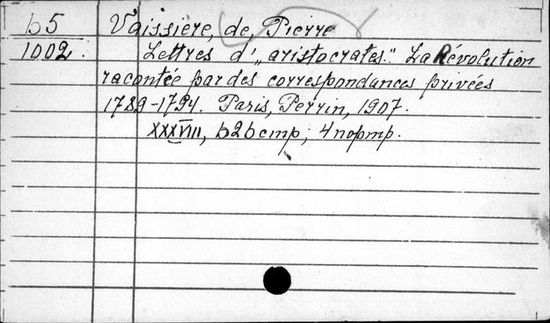 b5 Vaissière, de, Pierre
1002. Lettres d' „aristocrates." La Révolution
racontée par des correspondances privées
1789-1794. Paris, Perrin, 1907.
XXXVIII, 626 стр; 4 портр.